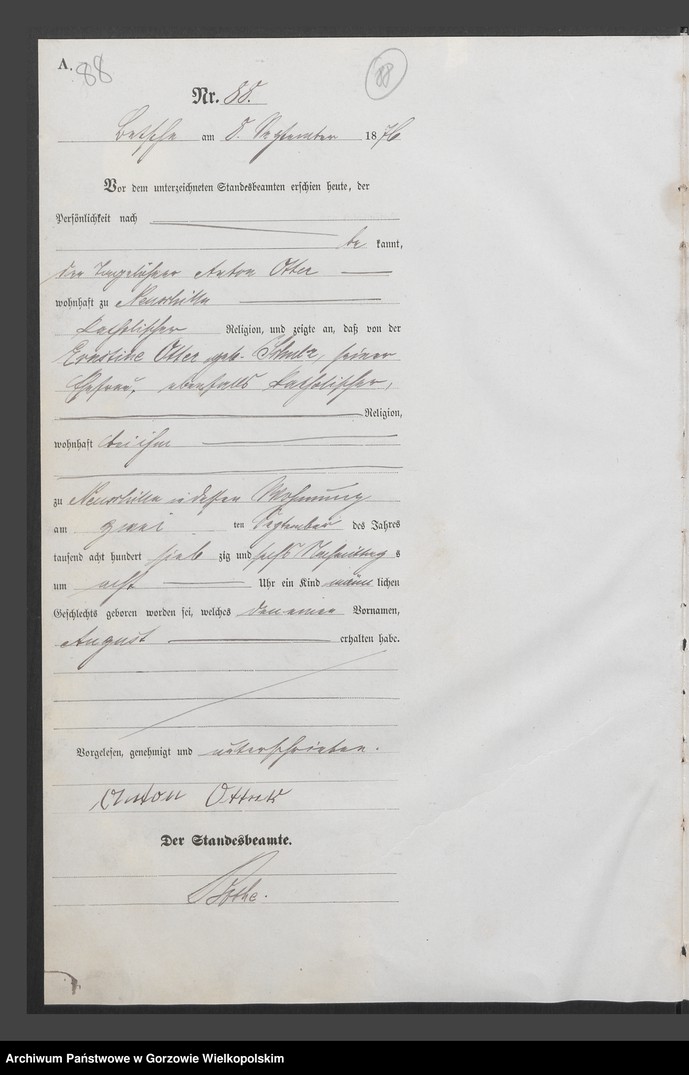 A. 88
88
Nr. 88.
Betsche am 8. September 1876
Vor dem unterzeichneten Standesbeamten erschien heute, der
Persönlichkeit nach
be kannt,
der Tagelöhner Anton Otter
wohnhaft zu
katholischer Religion, und zeigte an, daß von der
Ernstine Otter geb. Schulz, seiner
Ehefrau, ebenfalls katholischer,
Religion,
wohnhaft bei ihm
zu in dessen Wohnung
am zwei ten September des Jahres
tausend acht hundert sieb zig und sechs Nachmittag s
um acht Uhr ein Kind männ lichen
Geschlechts geboren worden sei, welches den einen Vornamen,
August erhalten habe.
Vorgelesen, genehmigt und unterschrieben.
Anton
Der Standesbeamte.
Archiwum Państwowe w Gorzowie Wielkopolskim